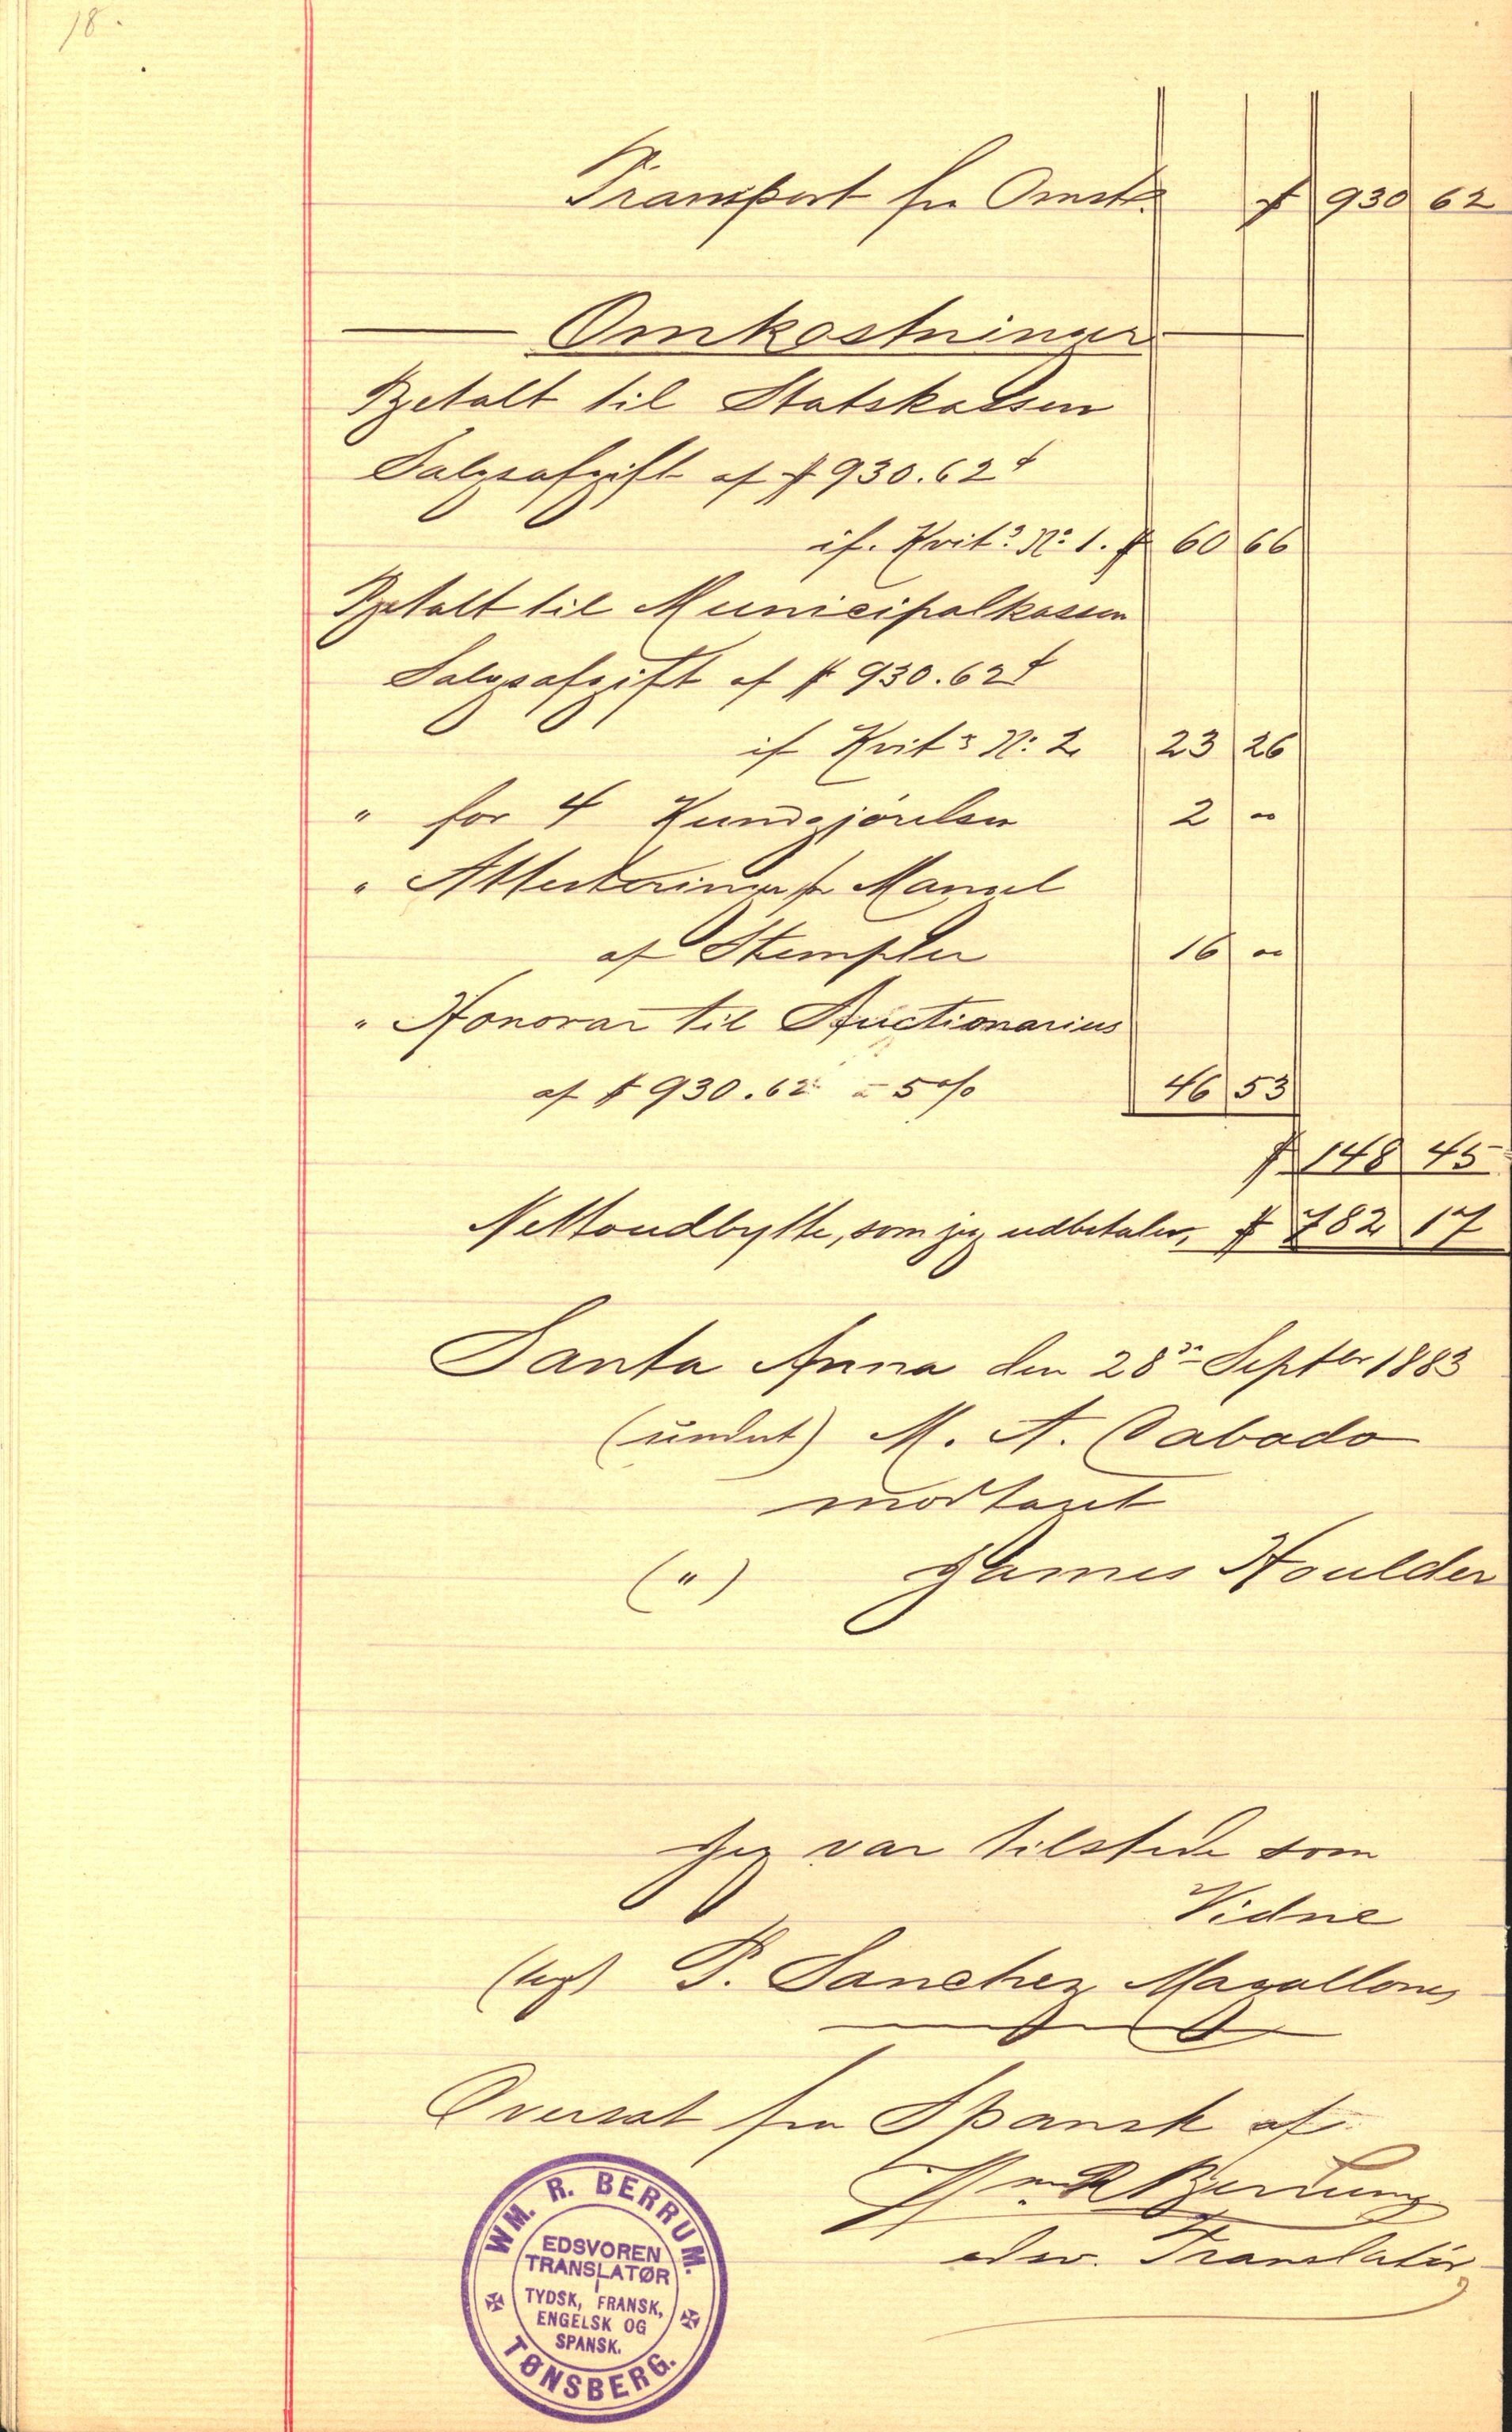 18.
Transport fra Omst. $ 930 62
Omkostninger
Betalt til Statskassen
Salgsafgift af $ 930.62 ¢
if. Kvitg No 1. $ 60 66
Betalt til Municipalkassen
Salgsafgift af $ 930.62 ¢
if Kvitg No 2 23 26
" for 4 Kundgjørelser 2 "
" Attesteringer for Mangel
af Stempler 16 "
" Honorar til Auctionarius
af $ 930.62 = 5 o/o 46 53
$ 148 45
Nettoudbytte, som jeg udbetaler, $ 782 17
Santa Anna den 28de Septbr 1883
(undert) M. A.
modtaget
(") James Houlder
Jeg var tilstede som
Vidne
P. Sanchez Magallones
Oversat fra Spansk af
Wm R Berrum
edsv. Translatør
WM. R. BERRUM.
EDSVOREN
TRANSLATØR
I
TYDSK, FRANSK,
ENGELSK OG
SPANSK.
TØNSBERG.